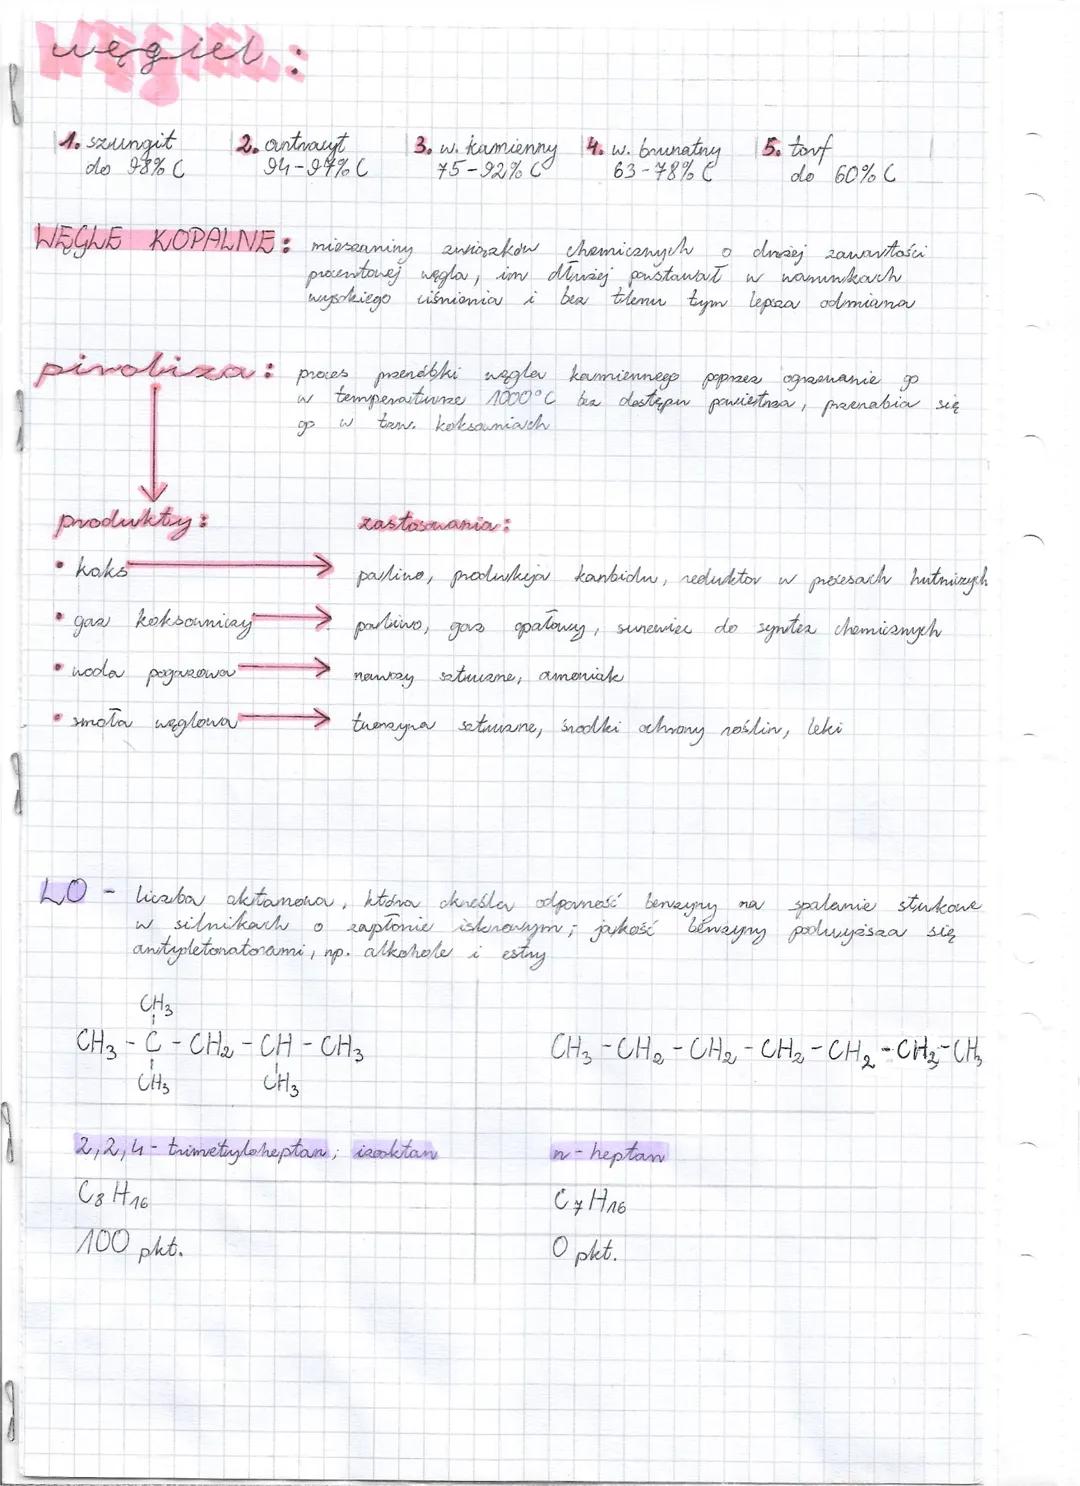 węgiel:
1. szungit 2. antracyt 3. w. kamienny 4. w. brunatny 5. torf
do 98% C 94-97% C 75-92% C 63-78% C do 60% C
WĘGLE KOPALNE: mieszaniny związków chemicznych o dużej zawartości
procentowej węgla, im dłużej powstawał w warunkach
wysokiego ciśnienia i bez tlenu tym lepsza odmiana
piroliza: proces przeróbki węgla kamiennego poprzez ogrzewanie go
w temperaturze 1000°C bez dostępu powietrza, przerabia się
go w tzw. koksowniach
produkty: zastosowania:
• koks paliwo, produkcja karbidu, reduktor w procesach hutniczych
• gaz koksowniczy paliwo, gaz opałowy, surowiec do syntez chemicznych
• woda pogazowa nawozy sztuczne, amoniak
• smoła węglowa tworzywa sztuczne, środki ochrony roślin, leki
LO - liczba oktanowa, która określa odporność benzyny na spalanie stukowe
w silnikach o zapłonie iskrowym; jakość benzyny podwyższa się
antydetonatorami, np. alkohole i estry
CH3
CH3 - C - CH2 - CH - CH3 CH3 - CH2 - CH2 - CH2 - CH2 - CH2 - CH3
CH3 CH3
2,2,4 - trimetyloheptan; izooktan n - heptan
C8 H16 C7 H16
100 pkt. 0 pkt.